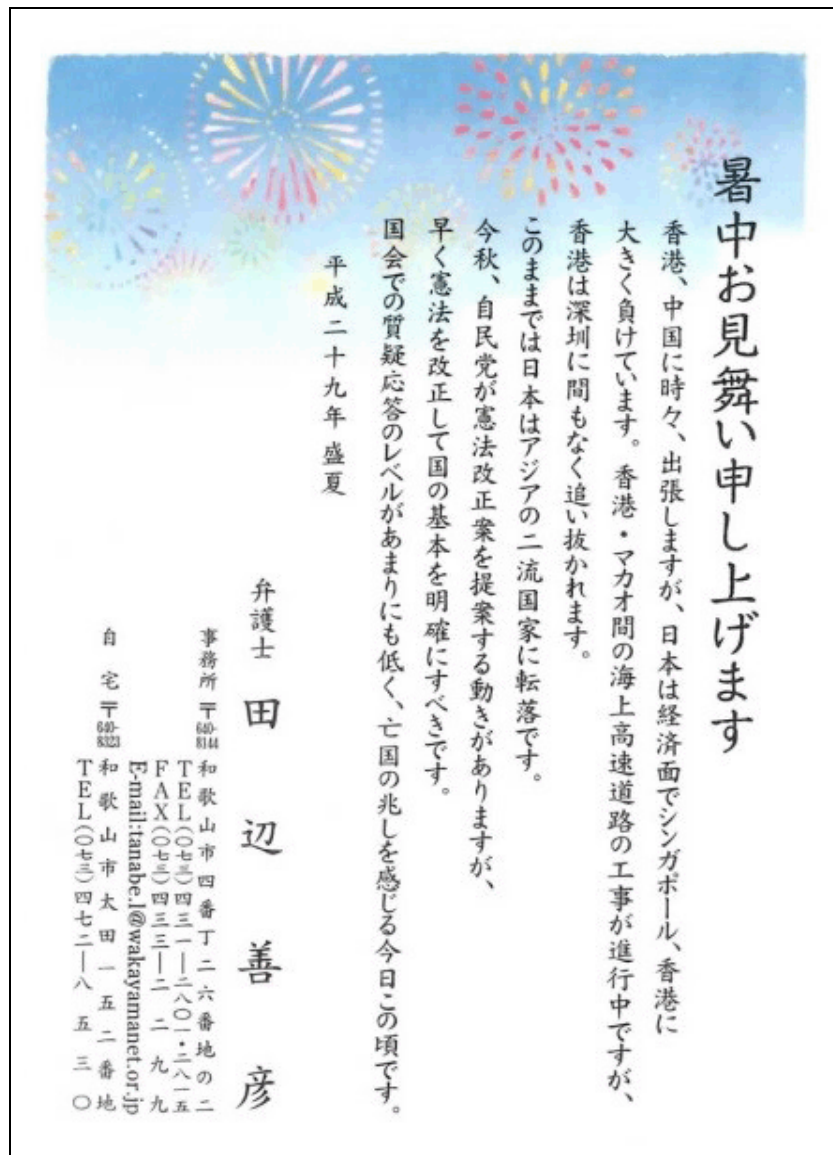 暑中お見舞い申し上げます
香港、中国に時々、出張しますが、日本は経済面でシンガポール、香港に
大きく負けています。香港・マカオ間の海上高速道路の工事が進行中ですが、
香港は深圳に間もなく追い抜かれます。
このままでは日本はアジアの二流国家に転落です。
今秋、自民党が憲法改正案を提案する動きがありますが、
早く憲法を改正して国の基本を明確にすべきです。
国会での質疑応答のレベルがあまりにも低く、亡国の兆しを感じる今日この頃です。
平成二十九年 盛夏
弁護士 田辺善彦
事務所 〒640-8144 和歌山市四番丁二六番地の二
TEL(〇七三)四三一―二八〇一・二八一五
FAX(〇七三)四三三―二二九九
E-mail:tanabe.l@wakayamanet.or.jp
自宅 〒640-8323 和歌山市太田一五二番地
TEL(〇七三)四七二―八五三〇